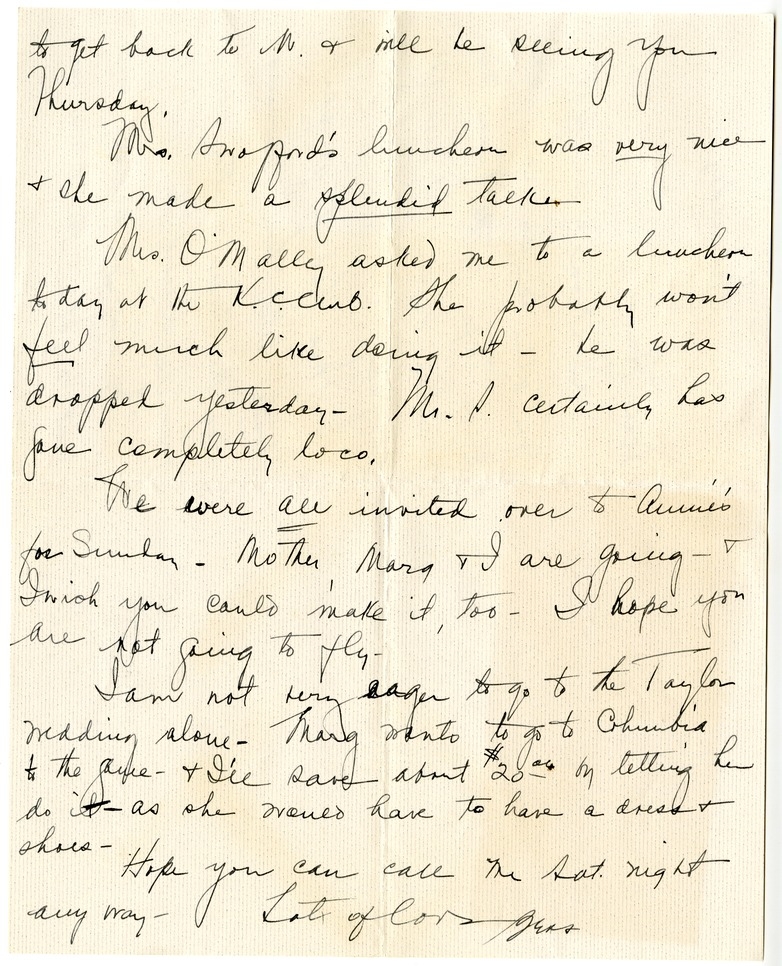 to get back to M. & will be seeing you
Thursday.
Mrs. Swofford's luncheon was very nice
& she made a splendid talk
Mrs. O'Malley asked me to a luncheon
today at the K.C. Club. She probably won't
feel much like doing it - he was
dropped yesterday - Mr. P. certainly has
gone completely loco.
We were all invited over to Annie's
for Sunday - Mother, Marg & I are going - &
I wish you could make it, too - I hope you
are not going to fly -
I am not very eager to go to the Taylor
wedding alone - Marg wants to go to Columbia
to the game - & I'll save about $20 00 by letting her
do it - as she would have to have a dress &
shoes -
Hope you can call me Sat. night
any way - Lots of love